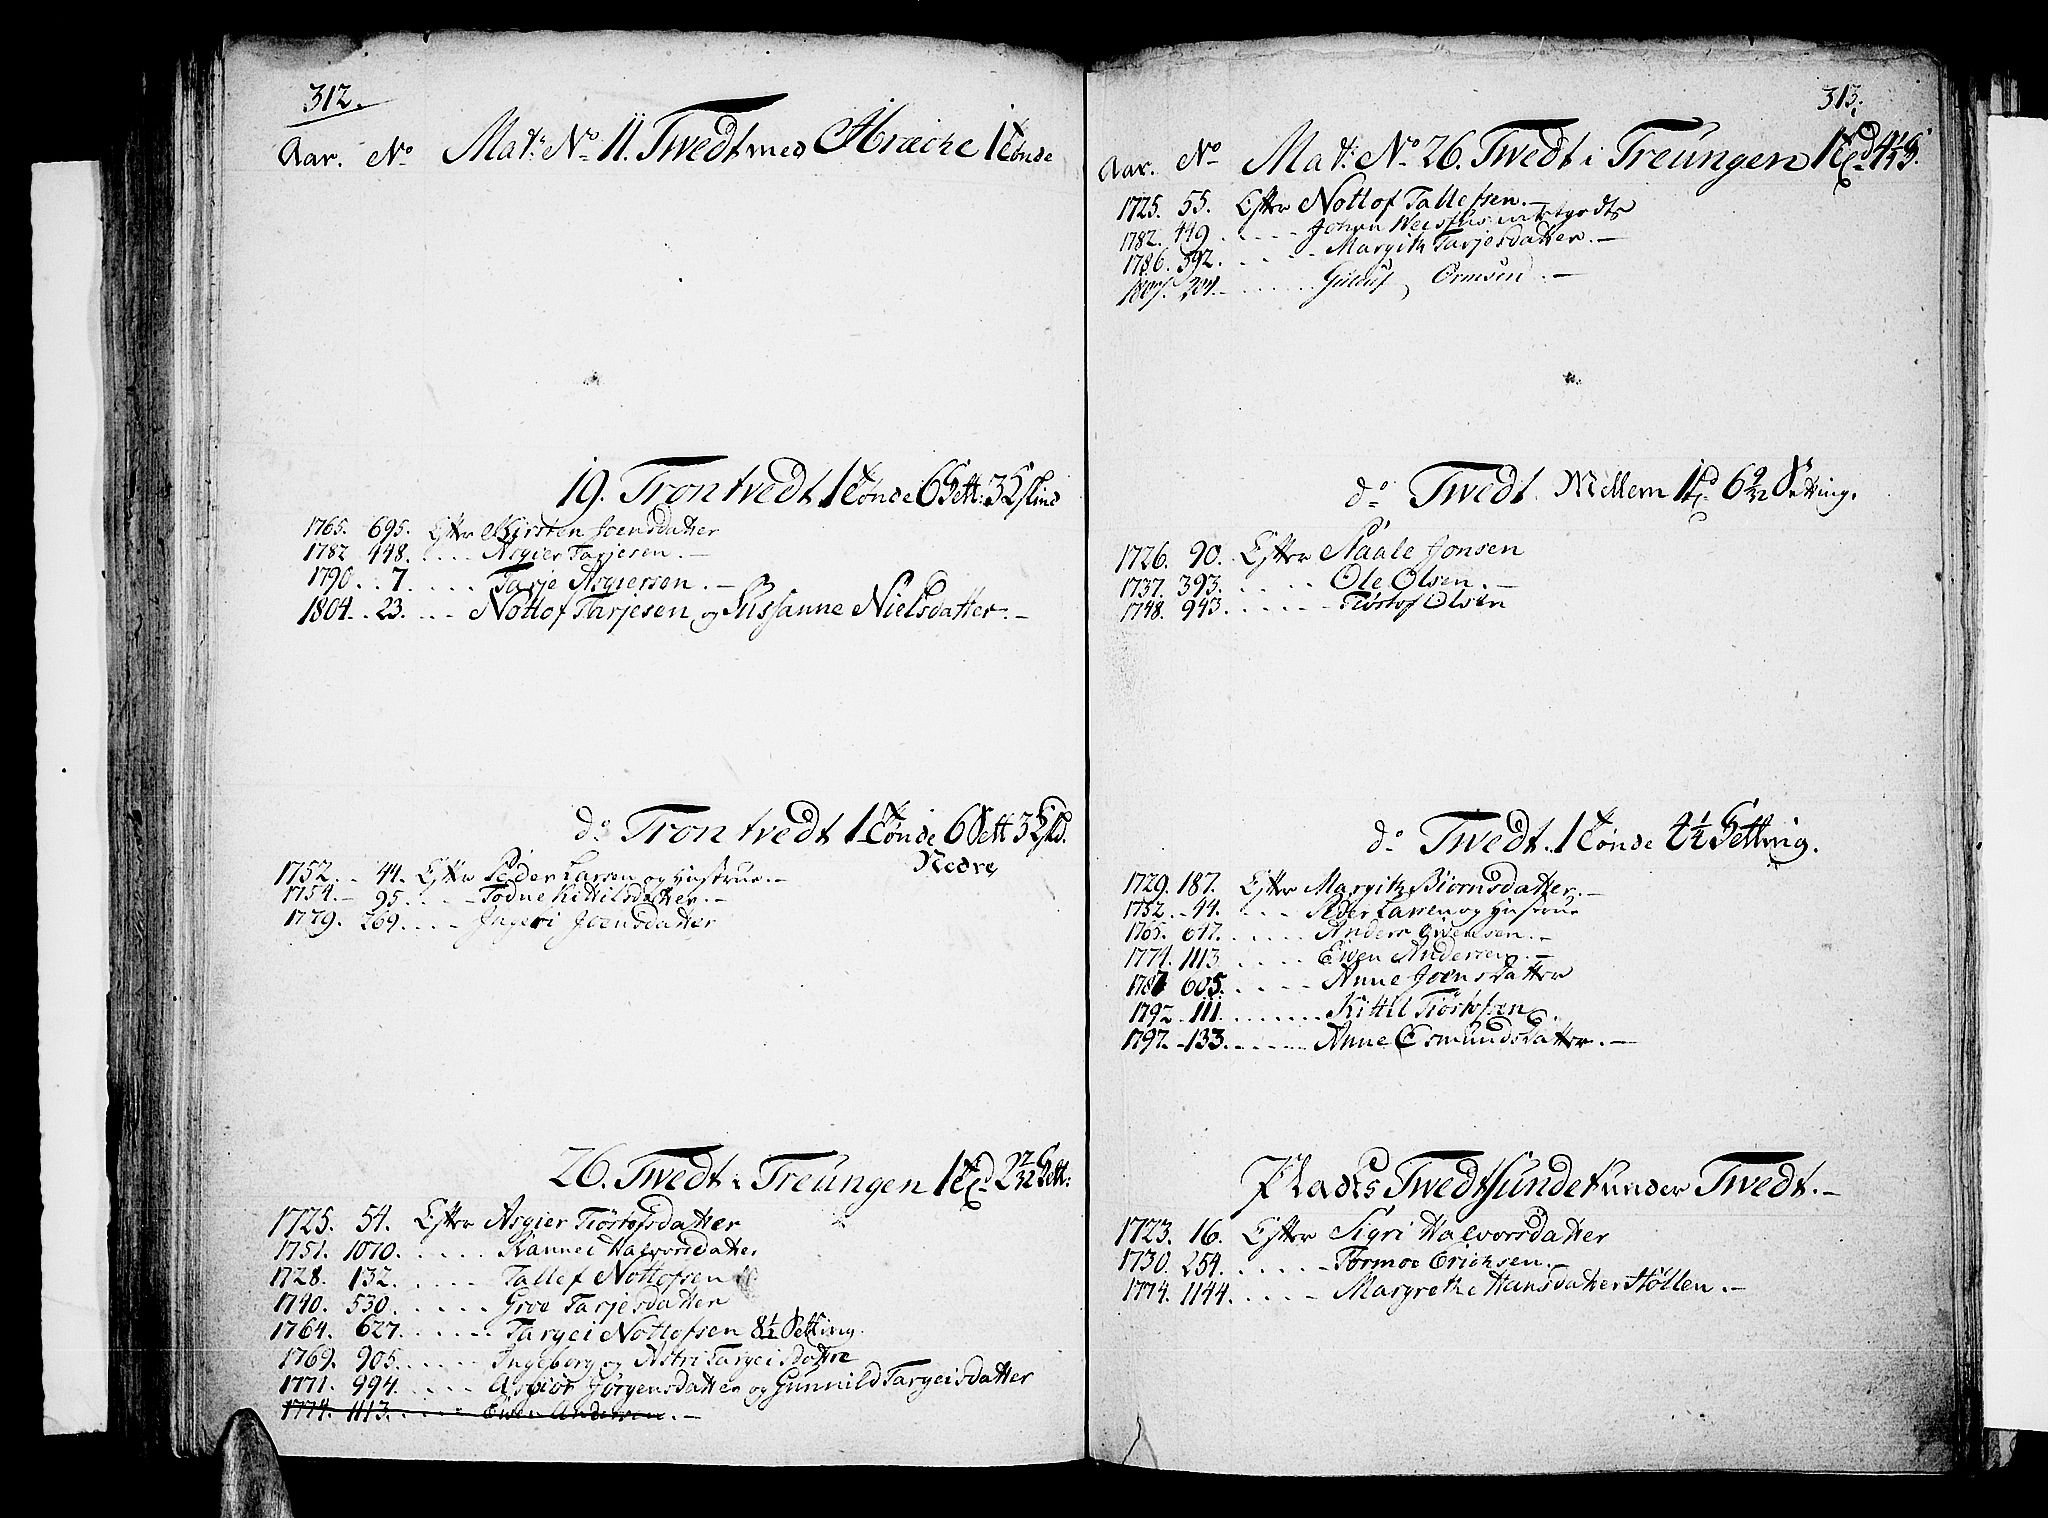 312.
Aar. No Mat: No 11. Twedt med Abræche 1 Tønde
19. Trontvedt 1 Tønde 6 Sett: 3 Skind
1765. 695. Efter Kirsten Joensdatter
1782 448. .... Asgier Tarjesen. —
1790. . 7. .... Tarje Asgiersen. —
1804. . 23. ... Nottof Tarjesen og Susanne Nielsdatter. —
do Trontvedt 1 Tønde 6 Sett 3
Nedre
1752. . 44. Efter Peder Larsen og Hustrue. —
1754. — 95. .... Todne Kittilsdatter. —
1779. 269. .... Ingeri Joensdatter
26. Twedt i Treungen 1 Td 2 Sett:
1725. 54. Efter Asgier Tiøstofsdatter
1751. 1070. ..... Rannei Halvorsdatter
1728. 132. ..... Tallef Nottofsen
1740. 530. ..... Groe Tarjesdatter
1764. 627. ...... Targei Nottofsen 8½ Setting.
1769. 905. ..... Ingeborg og Astri Targeisdattre
1771. 994. ..... Jørgensdatter og Gunnild Targeisdatter
1774. 1113. ..... Ewen Andersen. —
313.
Aar. No Mat: No 26. Twedt i Treungen 1 Td 4½ S.
1725. 55. Efter Nottof Tallefsen. —
1782. 449. ..... John
1786. 392. ..... Margith Tarjesdatter. —
1807. 304. ...... Ormsen. —
do Twedt. Mellem 1 Td 6 Setting.
1726. 90. Efter Saale Jonsen
1737. 393. ..... Ole Olsen. —
1748. 943. ...... Tiøstof Olsen
do Twedt. 1 Tønde 4½ Setting.
1729. 187. Efter Margith Biørnsdatter. —
1752. . 44. .... Peder Larsen og Hustrue
1765. 617. ...... Anders Ewensen. —
1774. 1113 ..... Ewen Andersen. —
1787 605. ..... Anne Joensdatter
1792. 111. ........ Kittil Tiøstofsen
1797. . 133. ...... Anne Osmundsdatter. —
Plads Twedtsundet under Twedt. —
1723. 16. Efter Sigri Halvorsdatter
1730. 254. ...... Tormoe Erichsen. —
1774. 1144. ..... Margrethe Hansdatter Støllen. —